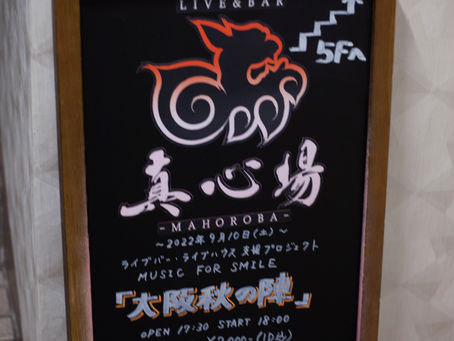 LIVE&BAR
5Fへ
真心場
-MAHOROBA-
～2022年9月10日(土)～
ライブバー・ライブハウス 支援プロジェクト
MUSIC FOR SMILE
「大阪秋の陣」
OPEN 17:30 START 18:00